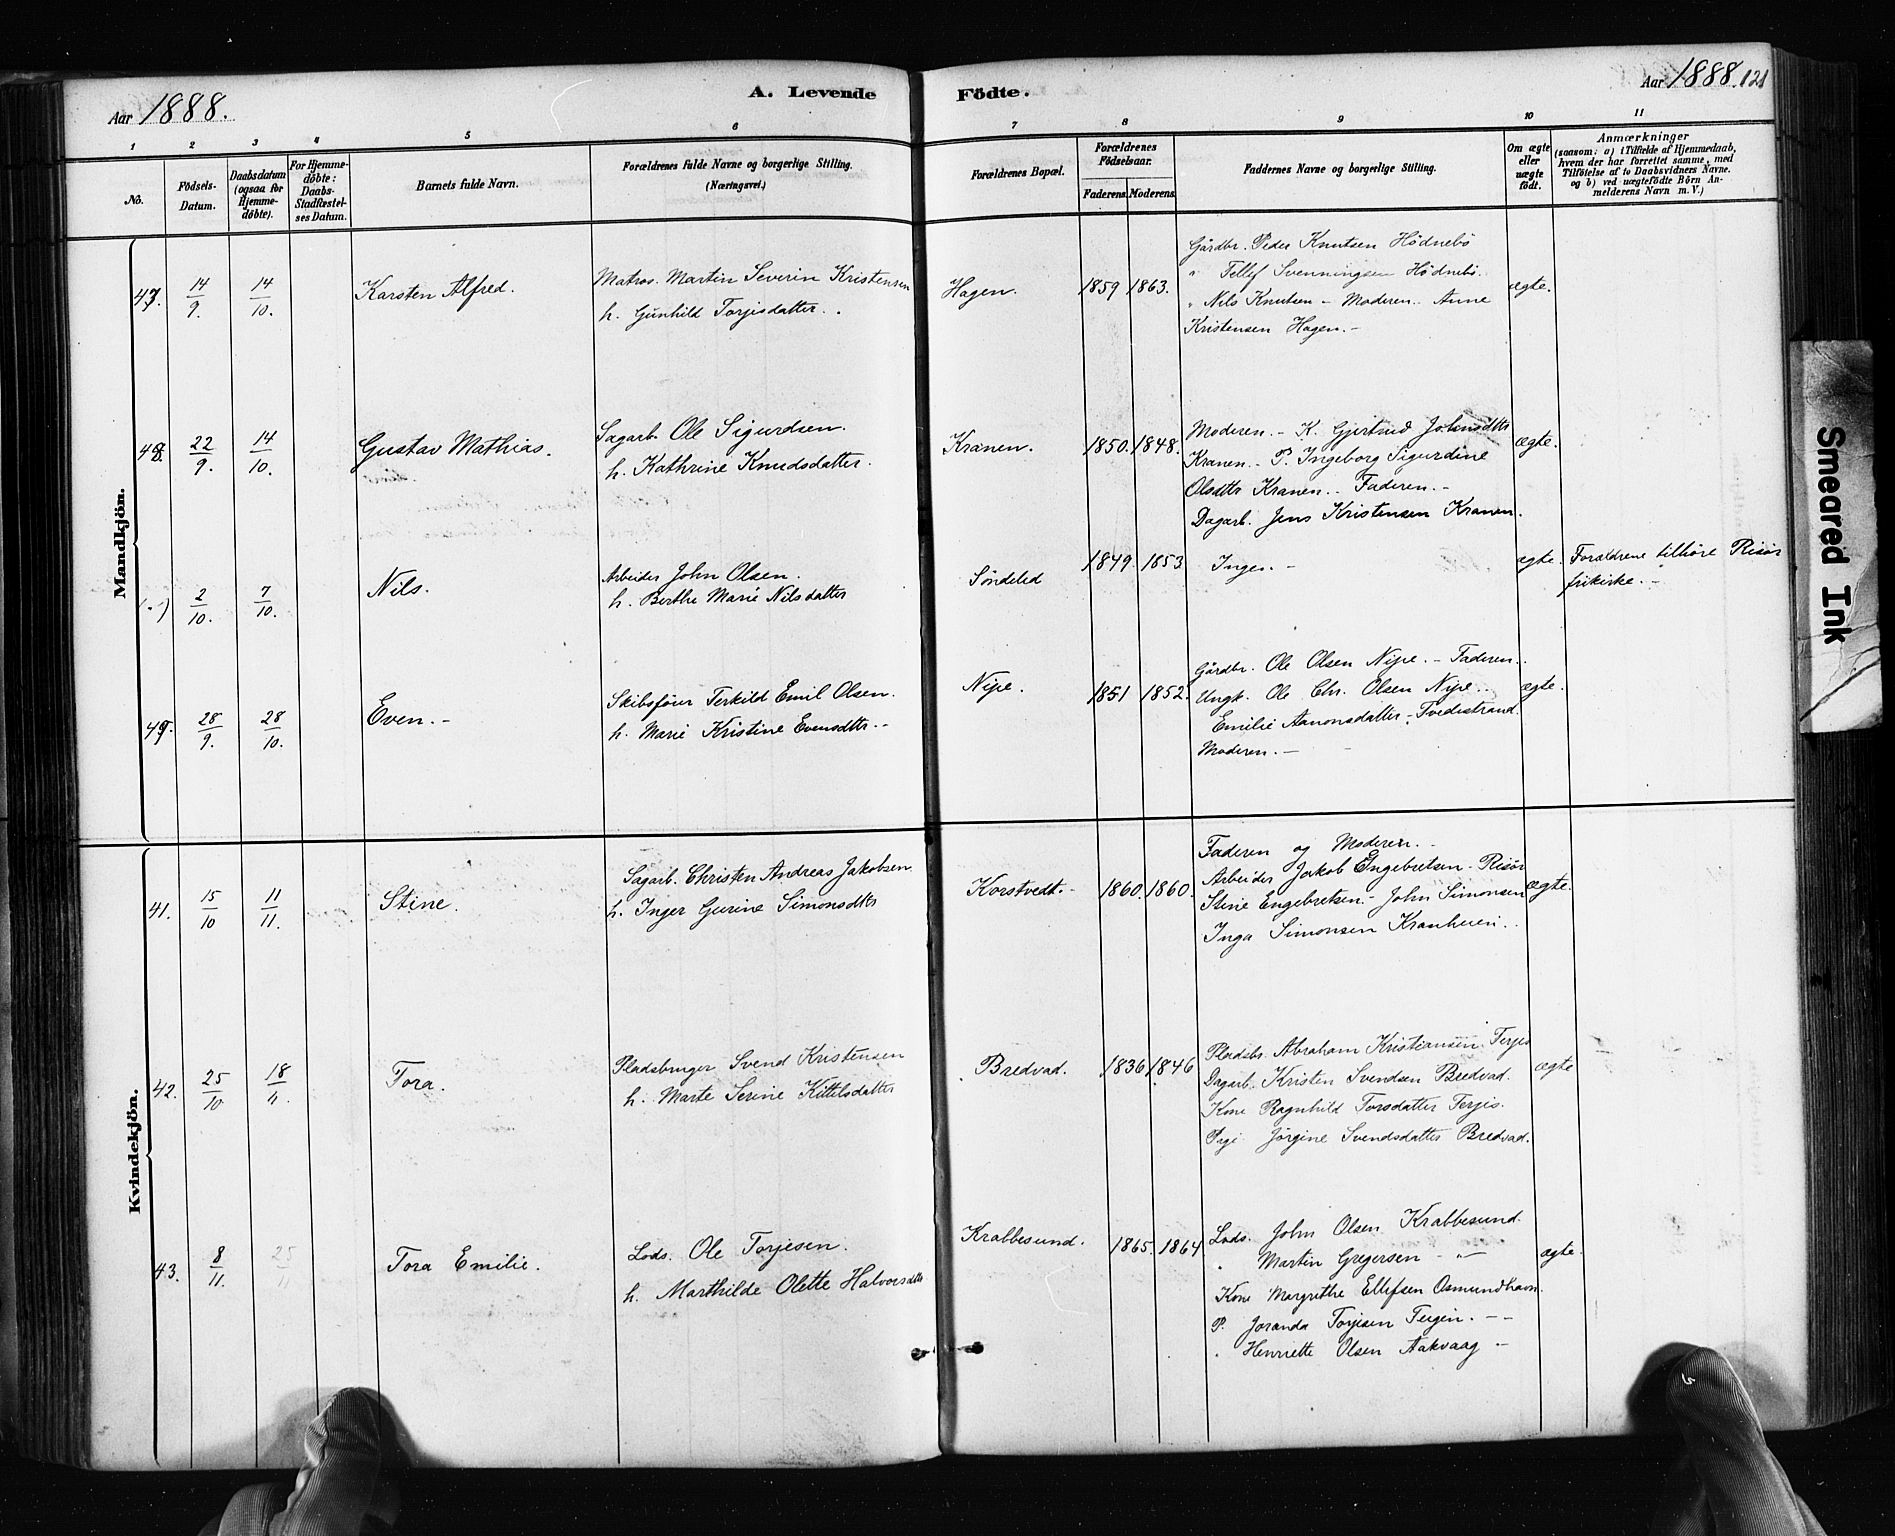 Aar 1888.
A. Levende
Födte.
Aar 1888. 121
1 2 3 4 5 6 7 8 9 10 11
No.
Födsels-
Datum.
Daabsdatum
(ogsaa for
Hjemme-
døbte).
For Hjemme-
døbte:
Daabs-
Stadfæstel-
ses Datum.
Barnets fulde Navn.
Forældrenes fulde Navne og borgerlige Stilling.
(Næringsvei.)
Forældrenes Bopæl.
Forældrenes
Födselsaar.
Faderens. Moderens.
Faddernes Navne og borgerlige Stilling.
Om ægte
eller
uægte
födt.
Anmærkninger
(saasom: a) i Tilfælde af Hjemmedaab,
hvem der har forrettet samme, med
Tilföielse af to Daabsvidners Navne.
og b) ved uægtefödte Börn An-
melderens Navn m. V.)
Mandkjön.
47. 14/9. 14/10. Karsten Alfred.
Matros. Martin Severin Kristensen
h. Gunhild Torjisdatter.
Hagen. 1859 1863.
Gårdbr. Peder Knutsen Hödnebö
" Tellef Svenningsen Hödnebö.
" Nils Knutsen - Moderen. Anne
Kristensen Hagen. -
ægte.
48. 22/9. 14/10. Gustav Mathias.
Sagarb. Ole Sigurdsen.
h. Kathrine Knudsdatter.
Kranen. 1850. 1848.
Moderen. - K. Gjertrud Johnsdtr
Kranen. - P. Ingeborg Sigurdine
Olsdtr Kranen. - Faderen. -
Dagarb. Jens Kristensen Kranen.
ægte.
2/10. 7/10. Nils.
Arbeider John Olsen.
h. Berthe Marie Nilsdatter
Söndeled 1849. 1853
Ingen. -
ægte. Forældrene tilhöre Risör
frikirke. -
49. 28/9. 28/10. Even. -
Skibsförer Terkild Emil Olsen.
h. Marie Kristine Evensdtr. -
Nipe. 1851 1852.
Gårdbr. Ole Olsen Nipe. - Faderen.
Ungk. Ole Chr. Olsen Nipe.
Emilie Aanonsdatter, Tvedestrand.
Moderen. -
ægte.
Kvindekjön.
41. 15/10 11/11. Stine.
Sagarb. Christen Andreas Jakobsen
h. Inger Gurine Simonsdtr
Korstvedt. - 1860. 1860.
Faderen og Moderen. -
Arbeider Jakob Engebretsen - Risör
Stine Engebretsen. - John Simonsen
Inga Simonsen Kranheien.
ægte.
42. 25/10 18/11. Tora.
Pladsbruger Svend Kristensen
h. Marte Serine Kittelsdatter
Bredvad. 1836 1846
Pladsbr. Abraham Kristiansen, Terjis
Dagarb. Kristen Svendsen Bredvad.
Kone Ragnhild Torsdatter Terjis.
Pige Jörgine Svendsdatter Bredvad.
ægte
43. 8/11. 25/11 Tora Emilie.
Lods. Ole Torjesen.
h. Marthilde Olette Halvorsdtr
Krabbesund. 1865. 1864
Lods. John Olsen Krabbesund.
" Martin Gregersen - " -
Kone Margrethe Ellefsen Osmundhavn.
P. Joranda Torjesen Feigen. - -
" Henriette Olsen Aakvaag -
ægte.
Smeared Ink